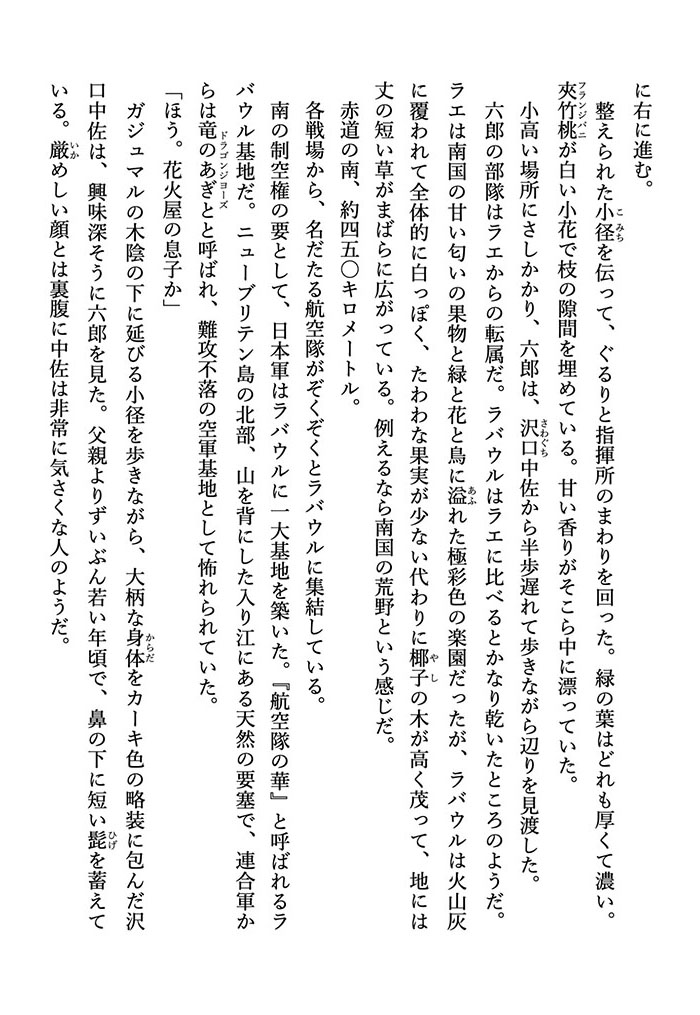 に右に進む。
　整えられた小径を伝って、ぐるりと指揮所のまわりを回った。緑の葉はどれも厚くて濃い。
夾竹桃が白い小花で枝の隙間を埋めている。甘い香りがそこら中に漂っていた。
　小高い場所にさしかかり、六郎は、沢口中佐から半歩遅れて歩きながら辺りを見渡した。
　六郎の部隊はラエからの転属だ。ラバウルはラエに比べるとかなり乾いたところのようだ。
ラエは南国の甘い匂いの果物と緑と花と鳥に溢れた極彩色の楽園だったが、ラバウルは火山灰
に覆われて全体的に白っぽく、たわわな果実が少ない代わりに椰子の木が高く茂って、地には
丈の短い草がまばらに広がっている。例えるなら南国の荒野という感じだ。
　赤道の南、約四五〇キロメートル。
　各戦場から、名だたる航空隊がぞくぞくとラバウルに集結している。
　南の制空権の要として、日本軍はラバウルに一大基地を築いた。『航空隊の華』と呼ばれるラ
バウル基地だ。ニューブリテン島の北部、山を背にした入り江にある天然の要塞で、連合軍か
らは竜のあぎとと呼ばれ、難攻不落の空軍基地として怖れられていた。
「ほう。花火屋の息子か」
　ガジュマルの木陰の下に延びる小径を歩きながら、大柄な身体をカーキ色の略装に包んだ沢
口中佐は、興味深そうに六郎を見た。父親よりずいぶん若い年頃で、鼻の下に短い髭を蓄えて
いる。厳めしい顔とは裏腹に中佐は非常に気さくな人のようだ。